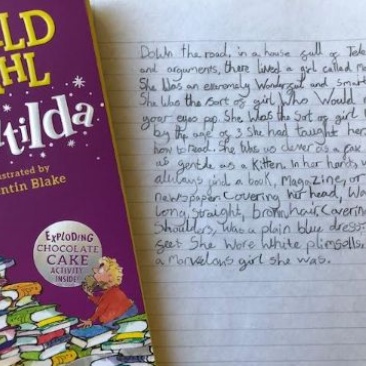 LD
HL
tilda
ustrated by
ntin Blake
EXPLODING
CHOCOLATE
CAKE
ACTIVITY
INSIDE!
Down the road, in a house full of
and arguments, there lived a girl called
She was an extremely wonderful and smart
She was the sort of girl, who would m
your eyes pop. She was the sort of girl
by the age of 3 she had taught hers
how to read. She was as clever as a fox
as gentle as a kitten. In her hands, w
always find a book, magazine, or
newspaper. Covering her head, was
long, straight, brown hair. Covering
shoulders, was a plain blue dress.
feet she wore white plimsolls.
a marvelous girl she was.